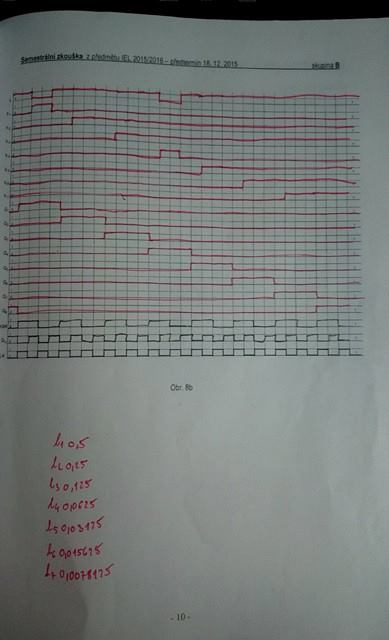 Semestrální zkouška z předmětu IEL 2015/2016 – předtermín 18. 12. 2015 skupina B
Obr. 8b
h1 0,5
h2 0,25
h3 0,125
h4 0,0625
h5 0,03125
h6 0,015625
h7 0,0078125
- 10 -